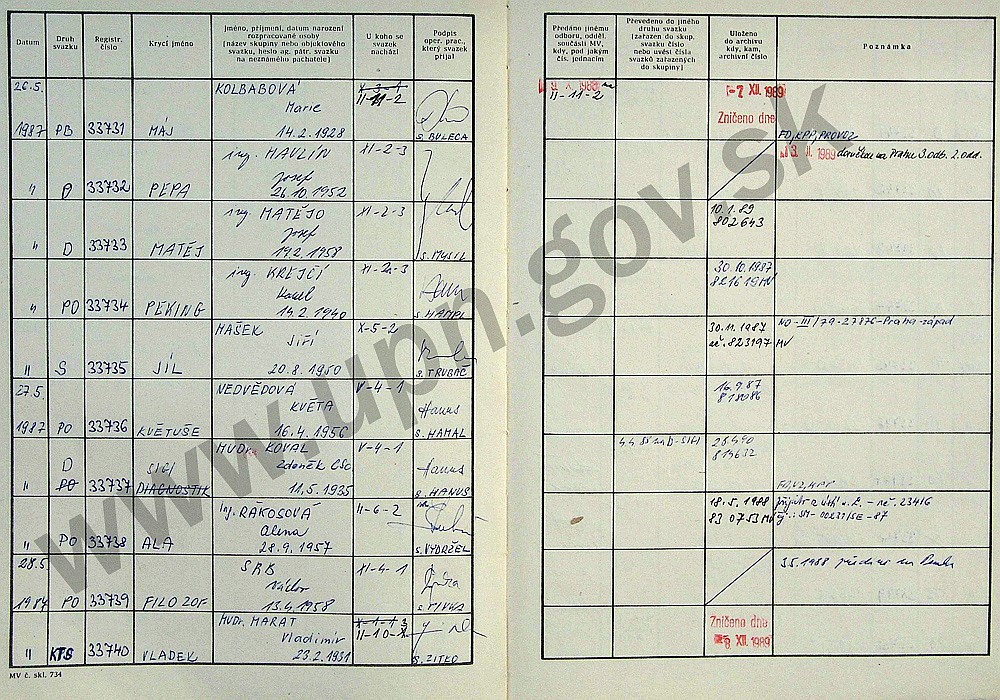 Datum
Druh svazku
Registr. číslo
Krycí jméno
Jméno, příjmení, datum narození
rozpracované osoby
(název skupiny nebo objektového
svazku, heslo ag. pátr. svazku
na neznámého pachatele)
U koho se
svazek
nachází
Podpis
oper. prac.,
který svazek
přijal
Předáno jinému
odboru, odděl.
součásti MV,
kdy, pod jakým
čís. jednacím
Převedeno do jiného
druhu svazku
(zařazen do skup.
svazku číslo
nebo uvést čísla
svazků zařazených
do skupiny)
Uloženo
do archivu
kdy, kam,
archivní číslo
Poznámka
26.5.
1987 PB 33731 MÁJ
KOLBABOVÁ
Marie
14.2.1928
X-3-1
II-11-2
s. BULECA
9. X. 1989
II-11-2
-7 XII. 1989
Zničeno dne
FO, KPP, PROVOZ
" D 33732 PEPA
ing. HAVLÍN
Josef
26.10.1952
XI-2-3
13. II. 1989 doručen na Prahu 3.odb. 2.odd.
" D 33733 MATĚJ
ing. MATĚJO
Josef
19.2.1958
XI-2-3
s. MYSIL
10.1.89
802643
" PO 33734 PEKING
ing. KREJČÍ
Karel
14.2.1940
XI-2-3
s. HAMPL
30.10.1987
821619 MV
" S 33735 JÍL
HAŠEK
JIŘÍ
20.8.1950
X-5-2
s. TRUBAČ
30.11.1987
823197 MV
NO-III/79-27176-Praha-západ
27.5.
1987 PO 33736 KVĚTUŠE
NEDVĚDOVÁ
KVĚTA
16.4.1956
V-4-1
Hanus
s. HAMAL
16.9.87
818086
D
" PO 33737 DIAGNOSTIK
MUDr. KOVAL
Zdeněk CSc.
11.5.1935
V-4-1
Hanus
s. HANUS
813632
" PO 33738 ALA
Ing. RAKOSOVÁ
Alena
28.9.1957
II-6-2
s. VYDRŽEL
18.5.1988
830753 MV
23416
28.5.
1987 PO 33739 FILOZOF
SRB
Václav
13.4.1958
XI-4-1
3.5.1988
" KTS 33740 VLADEK
MUDr. MARAT
Vladimír
23.2.1931
X-1-13
II-10-X
s. ZITKO
Zničeno dne
6 XII. 1989
MV č. skl. 734
www.upn.gov.sk